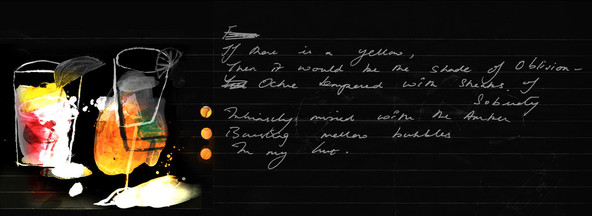 If there is a yellow,
Then it would be the shade of Oblivion -
Ochre tempered with Shades of
Sobriety
Intrinsically mixed with the Amber
Bursting mellow bubbles
In my